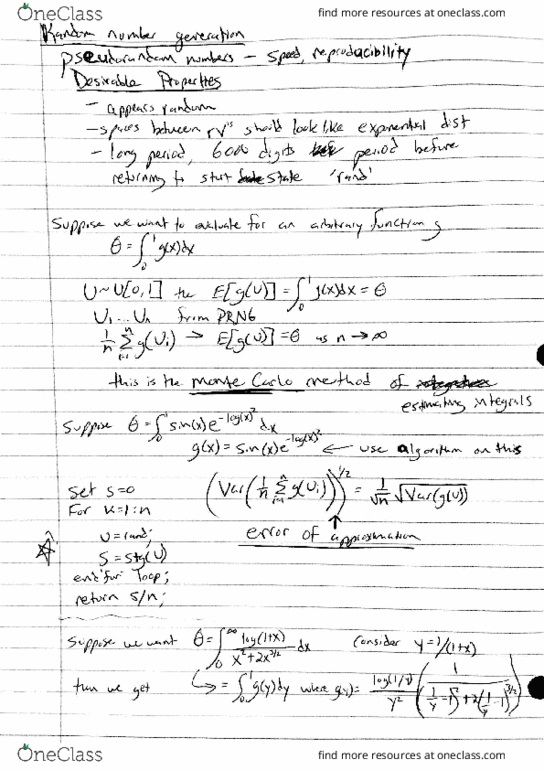 OneClass
find more resources at oneclass.com
Random number generation
pseudorandom numbers - speed, reproducibility
Desirable Properties
- appears random
- spaces between rv's should look like exponential dist
- long period, 6000 digits period before
returning to start state 'rand'
Suppose we want to evaluate for an arbitrary function g
θ = ∫₀¹ g(x)dx
U~U[0,1] the E[g(U)] = ∫₀¹ g(x)dx = θ
U₁...Uₙ from PRNG
1/n Σᵢ₌₁ⁿ g(Uᵢ) → E[g(U)] = θ as n → ∞
this is the Monte Carlo method of
estimating integrals
Suppose θ = ∫₀¹ sin(x)e^(-log(x)²) dx
g(x) = sin(x)e^(-log(x)²) ← use algorithm on this
Set s=0
For k=1:n
U=rand;
S=S+g(U)
end 'for' loop;
return S/n;
(Var(1/n Σᵢ₌₁ⁿ g(Uᵢ)))^(1/2) = 1/√n √Var(g(U))
error of approximation
Suppose we want θ = ∫₀^∞ log(1+x)/(x²+2x^(3/2)) dx consider y=1/(1+x)
then we get = ∫₀¹ g(y)dy where g(y) = log(1/y)/y² (1/((1/y-1)²+2(1/y-1)^(3/2)))
OneClass
find more resources at oneclass.com